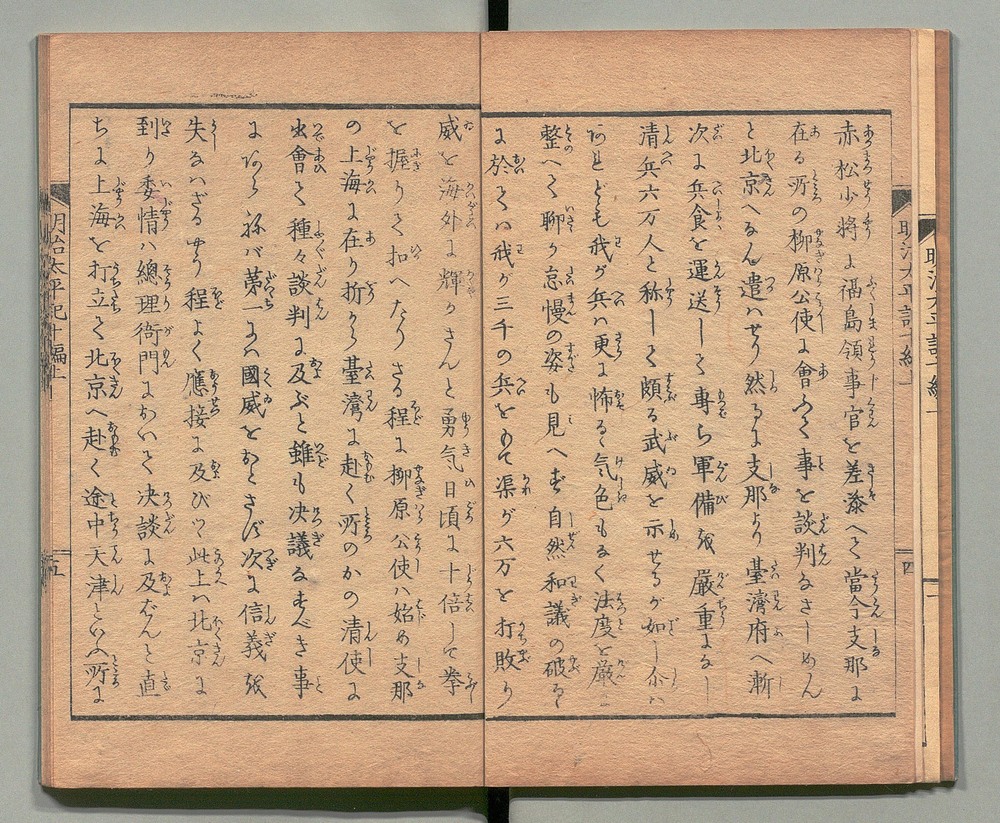 赤松少将に福島領事官を差添へて當今支那に
在る所の柳原公使に會ふて事を談判なさしめん
と北京へなん遣はせり然るに支那より臺湾府へ漸
次に兵食を運送して専ら軍備を嚴重になし
清兵六万人と称して頗る武威を示せるが如し
あれども我が兵は更に怖るゝ気色もなく法度を厳
整へて聊か怠慢の姿も見へず自然和議の破るゝ
に於ては我が三千の兵をもて渠が六万を打敗り
威を海外に輝かさんと勇気日頃に十倍して拳
を握りて扣へたりさる程に柳原公使は始め支那
の上海に在り折から臺灣に赴く所のかの清使に
出會て種々談判に及ぶと雖も决議なすべき事
にあらねば第一には國威をおとさず次に信義を
失なはざるやう程よく應接に及びつ此上は北京に
到り委情は總理衙門において决談に及ばんと直
ちに上海を打立て北京へ赴く途中天津といふ所に
明治太平記十編上
五
明治太平記十編上
四